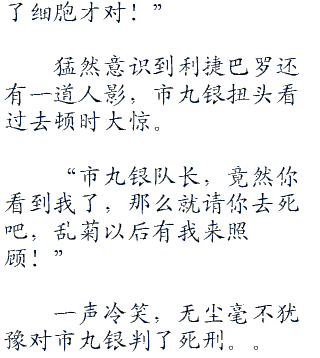 了细胞才对！”
猛然意识到利捷巴罗还
有一道人影，市九银扭头看
过去顿时大惊。
“市九银队长，竟然你
看到我了，那么就请你去死
吧，乱菊以后有我来照
顾！”
一声冷笑，无尘毫不犹
豫对市九银判了死刑。。